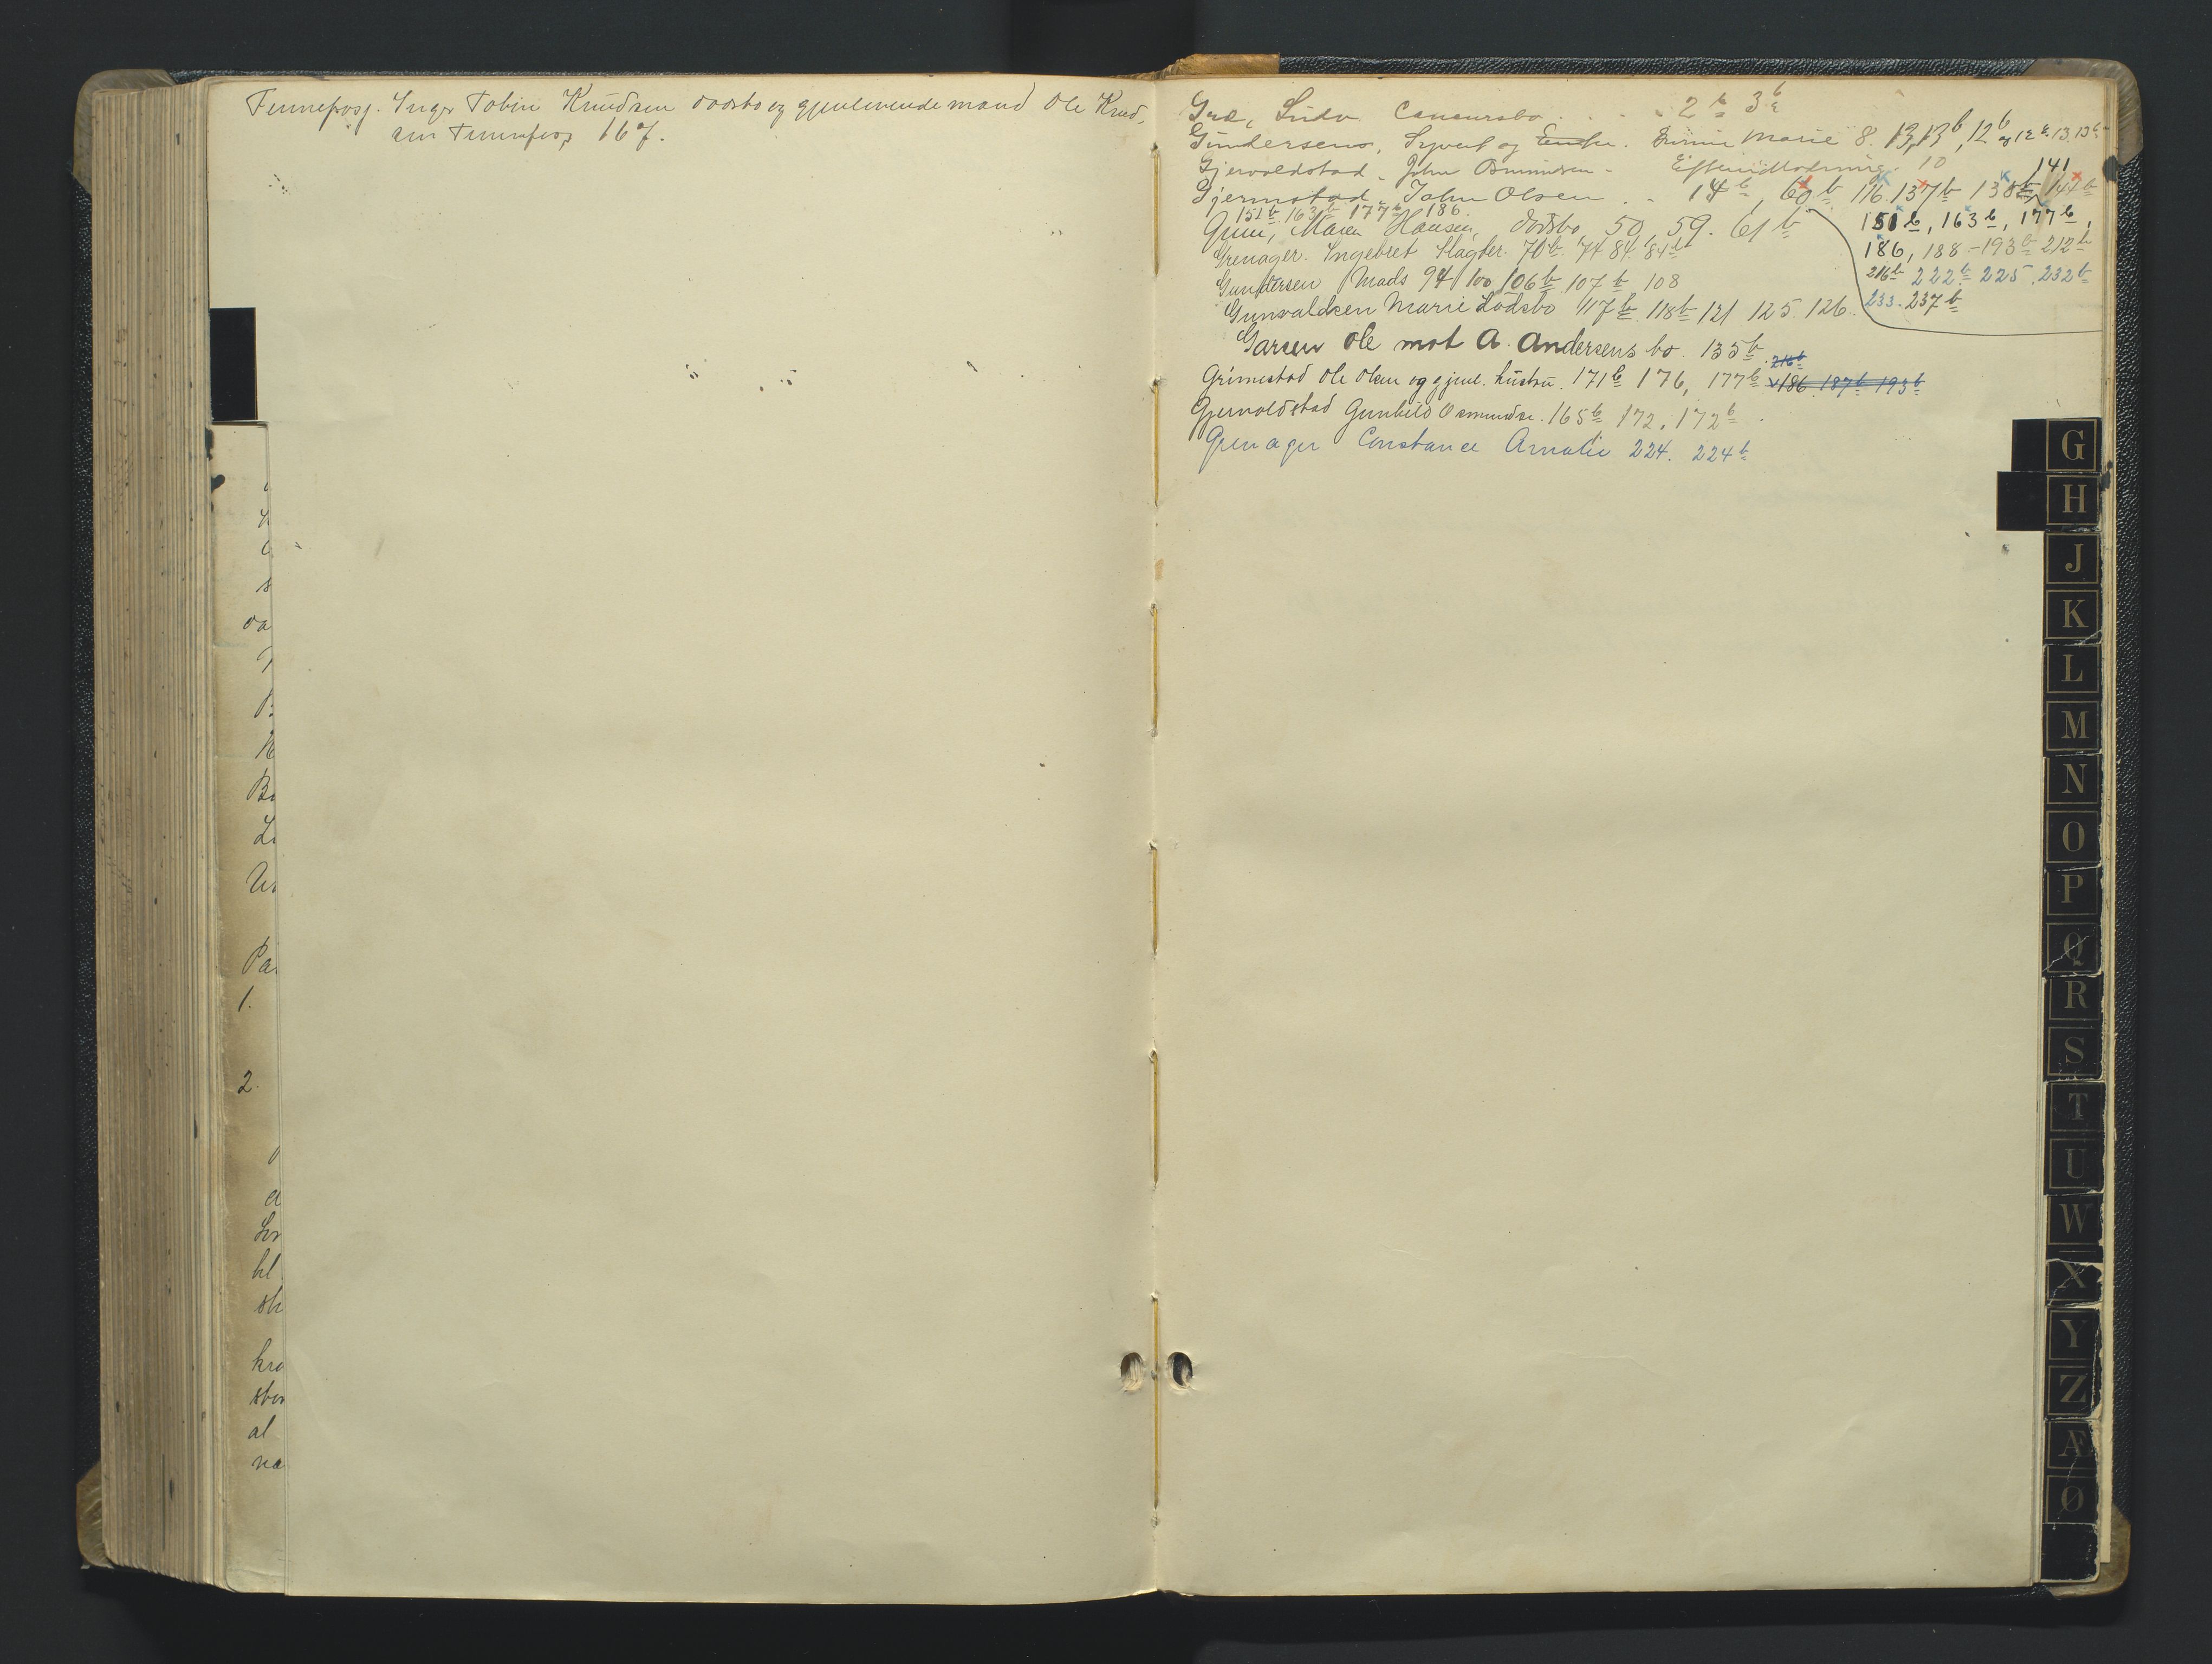 Fennefoss. Inger Tobine Knudsen dødsbo og gjenlevende mand Ole Knud-
sen Fennefoss 167.
oa
Be
Pa
1.
2.
kra
al
na
Concursbo . . . 2b 3b
Gundersens, Syvert og Enke. Marie 8. 13, 13b, 12b og 12b. 13. 13b
Gjervoldstad, John Osmundsen - 10
141
Gjermstad John Olsen . . 14b, 60b 116. 137b 138b 147b
151b 163b 177b 186.
Maren Hansen, dødsbo 50, 59. 61b
151b, 163b, 177b,
186, 188-193b 212b
216b 222b 225, 232b
233. 237b
Grenager. Ingebret Slagter. 70b. 74 84. 84b
Gundersen Mads 94 100 106b 107b 108
Gunvaldsen Marie Dødsbo 117b 118b 121 125. 126.
Garsen Ole mot A. Andersens bo. 135b.
216b
Grimestad Ole Olsen og gjenl. hustru. 171b 176, 177b 186. 187b 193b
Gjervoldstad Gunhild Osmundsn. 165b 172. 172b
Grenager Constance Amalie 224. 224b
G
H
J
K
L
M
N
O
P
Q
R
S
T
U
W
X
Y
Z
Æ
Ø